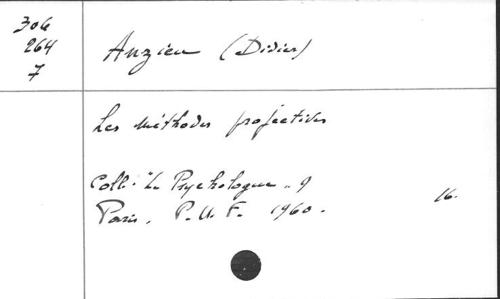 306
264
7
Anzieu (Didier)
Les méthodes projectives
Coll. "Le Psychologue" 9
Paris. P.U.F. 1960.
16.